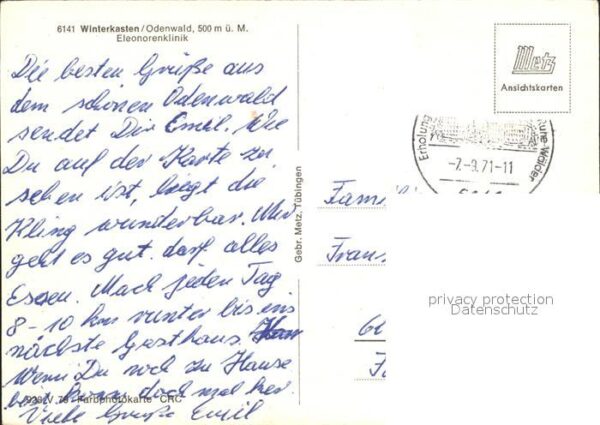 6141 Winterkasten/Odenwald, 500 m ü. M.
Eleonorenklinik
Die besten Grüße aus
dem schönen Odenwald
sendet Dir Emil. Wie
Du auf der Karte zu
sehen ist, liegt die
Kling wunderbar. Mir
geht es gut. darf alles
Essen. Mach jeden Tag
8-10 km runter bis ins
nächste Gasthaus.
Wenn Du noch zu Hause
bist komm doch mal her.
Viele Grüße Emil
V. 70 Farbphotokarte CRC
Gebr. Metz, Tübingen
Metz
Ansichtskarten
Erholung
Wälder
-7.-9.71-11
Fam
Fran
61
privacy protection
Datenschutz